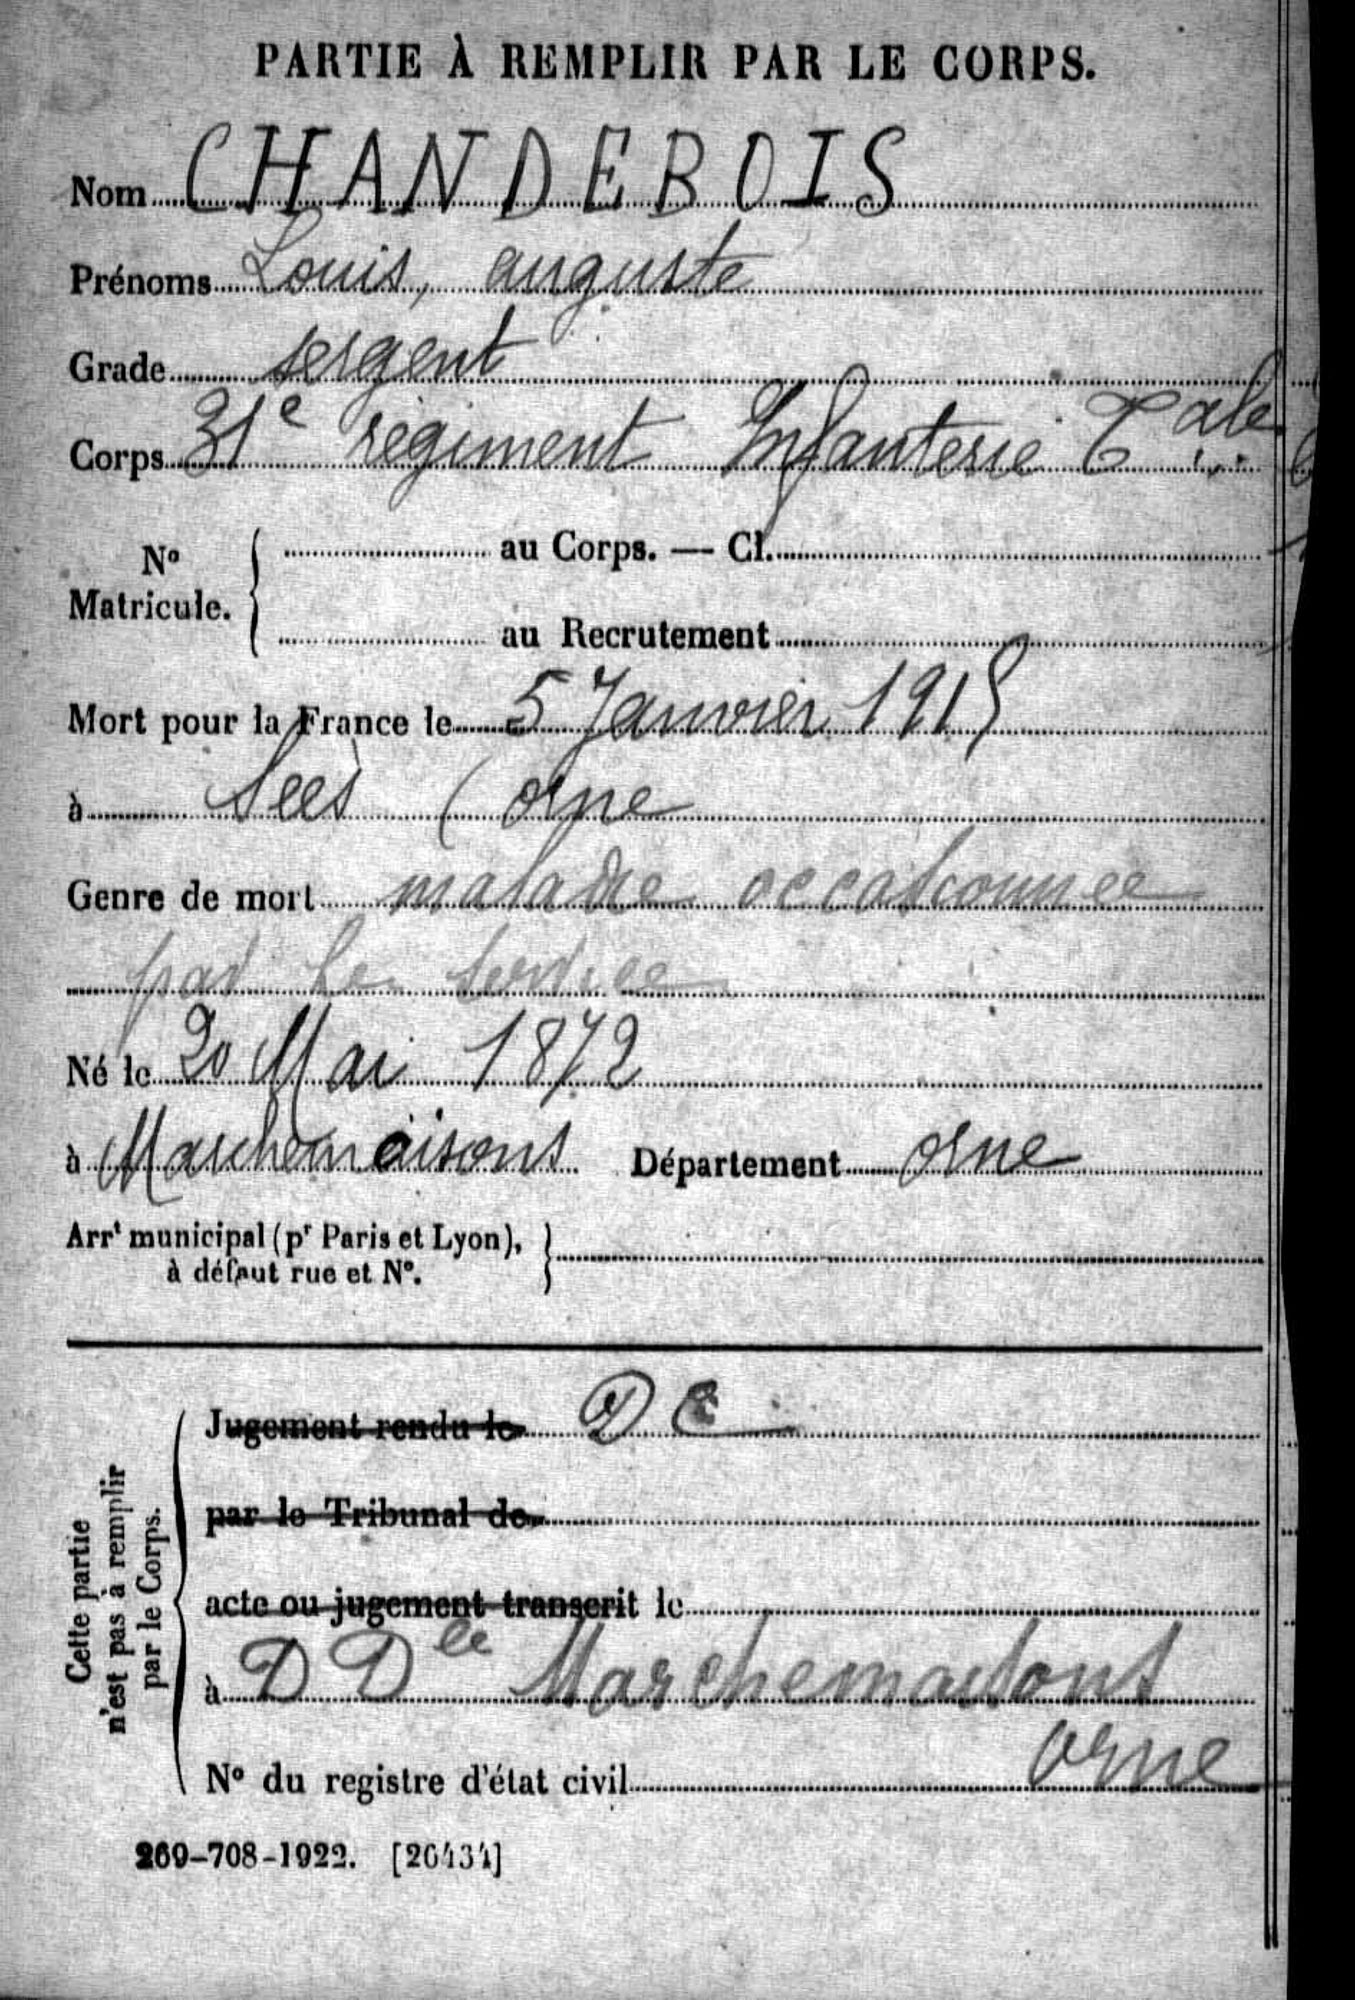 PARTIE À REMPLIR PAR LE CORPS.
Nom CHANDEBOIS
Prénoms Louis, auguste
Grade sergent
Corps 31e régiment Infanterie Tale
No Matricule. { au Corps. — Cl.
au Recrutement
Mort pour la France le 5 Janvier 1915
à Sées (orne
Genre de mort maladie occasionnée
par le service
Né le 20 Mai 1872
à Marchemaisons Département orne
Arrt municipal (pr Paris et Lyon),
à défaut rue et No.
Cette partie n'est pas à remplir par le Corps.
Jugement rendu le DC
par le Tribunal de
acte ou jugement transcrit le
à D Dce Marchemaisons
orne
No du registre d'état civil
269-708-1922. [26434]